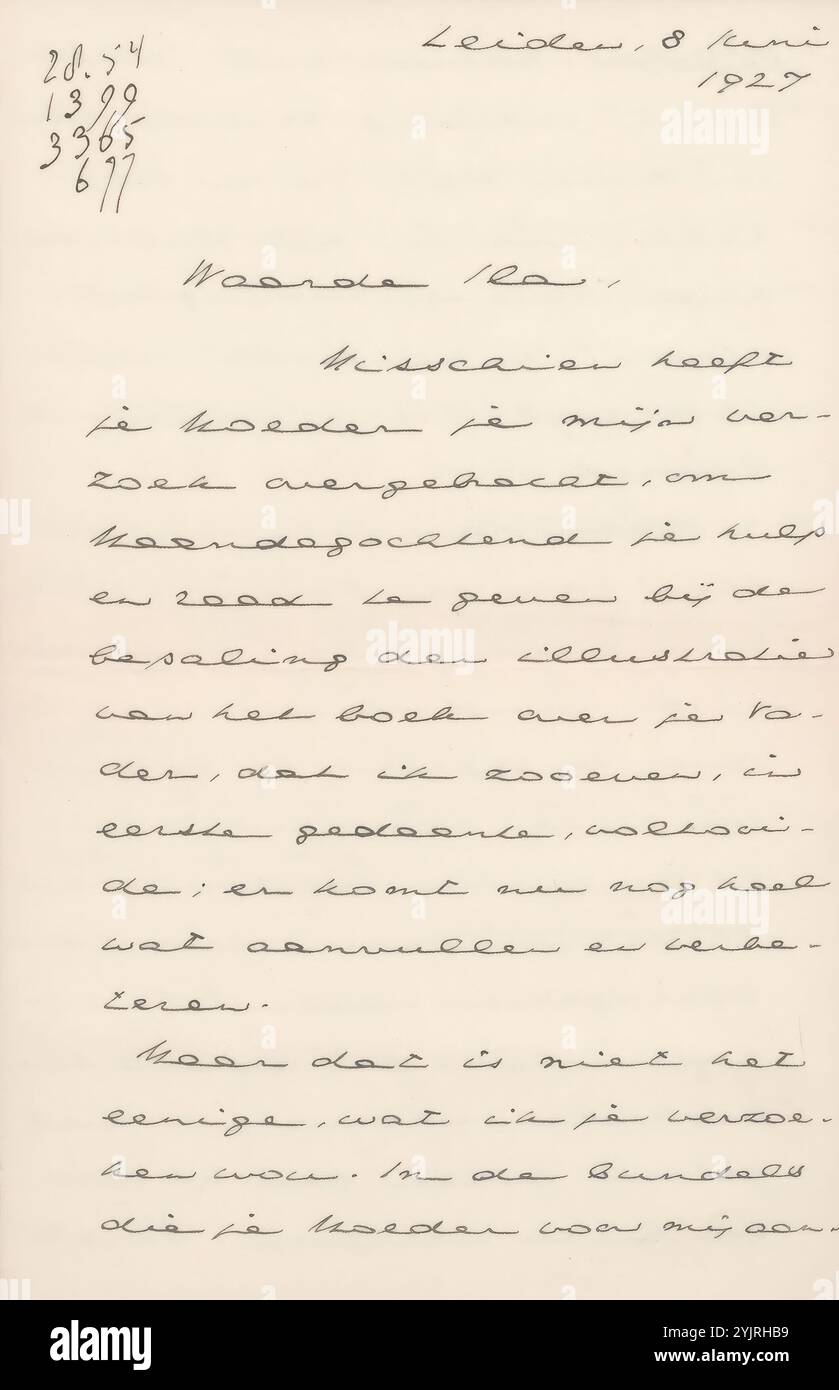 Leiden, 8 Juni
1927
28.54
1399
3365
677
Waarde Ila,
Misschien heeft
je Moeder je mijn ver-
zoek overgebracht, om
Maandagochtend je hulp
en raad te geven bij de
bepaling der illustratie
van het boek over je Va-
der, dat ik zooeven, in
eerste gedaente, voltooi-
de; er komt nu nog heel
wat aanvullen en verbe-
teren.
Maar dat is niet het
eenige, wat ik je verzoe-
ken wou. In de bundels
die je Moeder voor mij aan-
alamy
Image ID: 2YJRHB9
www.alamy.com